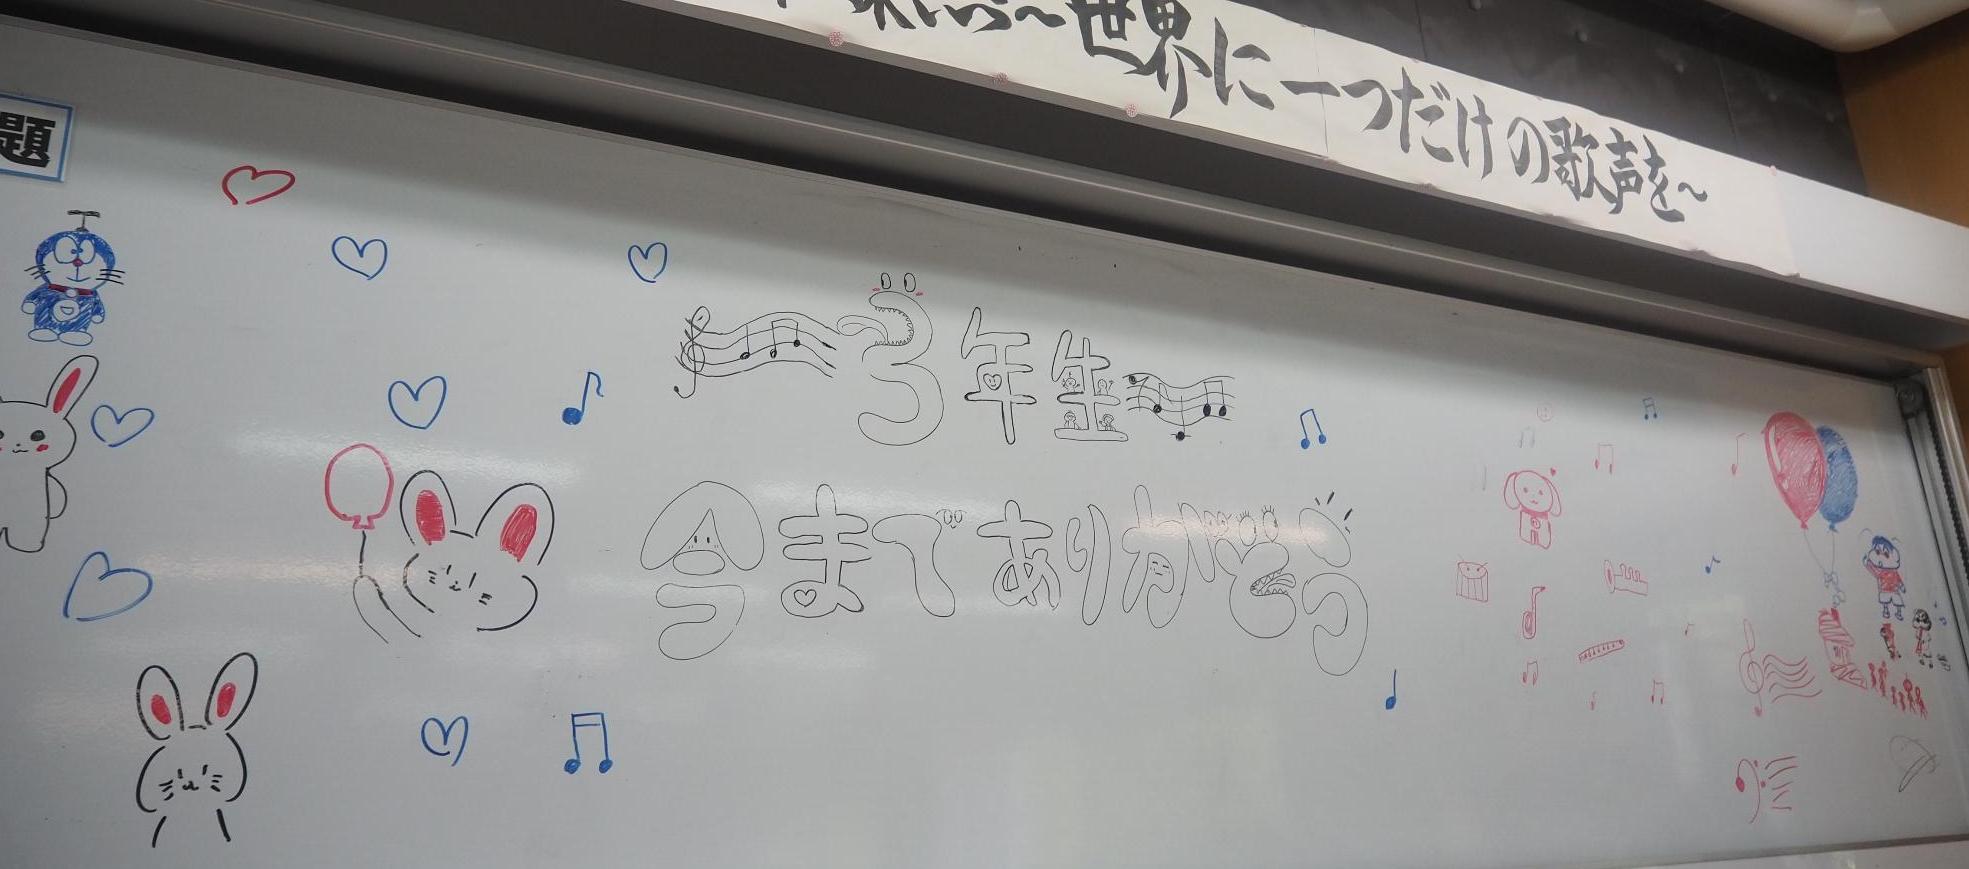 ～世界に一つだけの歌声を～
題
3年生
今までありがとう